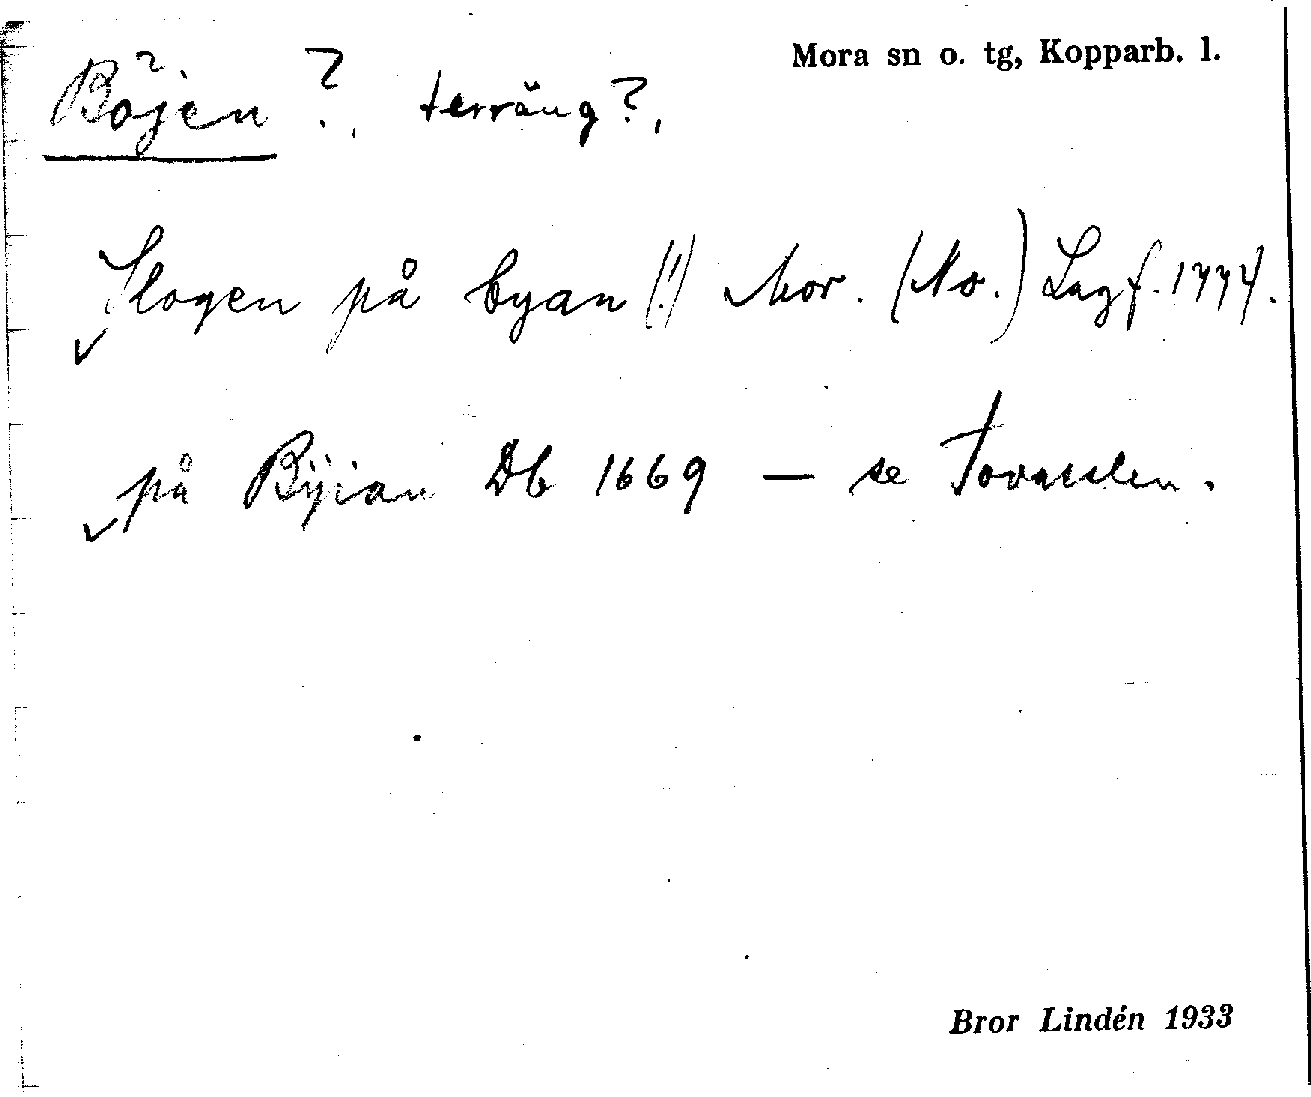 Mora sn o. tg, Kopparb. l.
Böjen ?, terräng?,
Skogen på byan (!) Mor. (No.) Lagf. 1774.
på Bÿian Db 1669 — se
Bror Lindén 1933